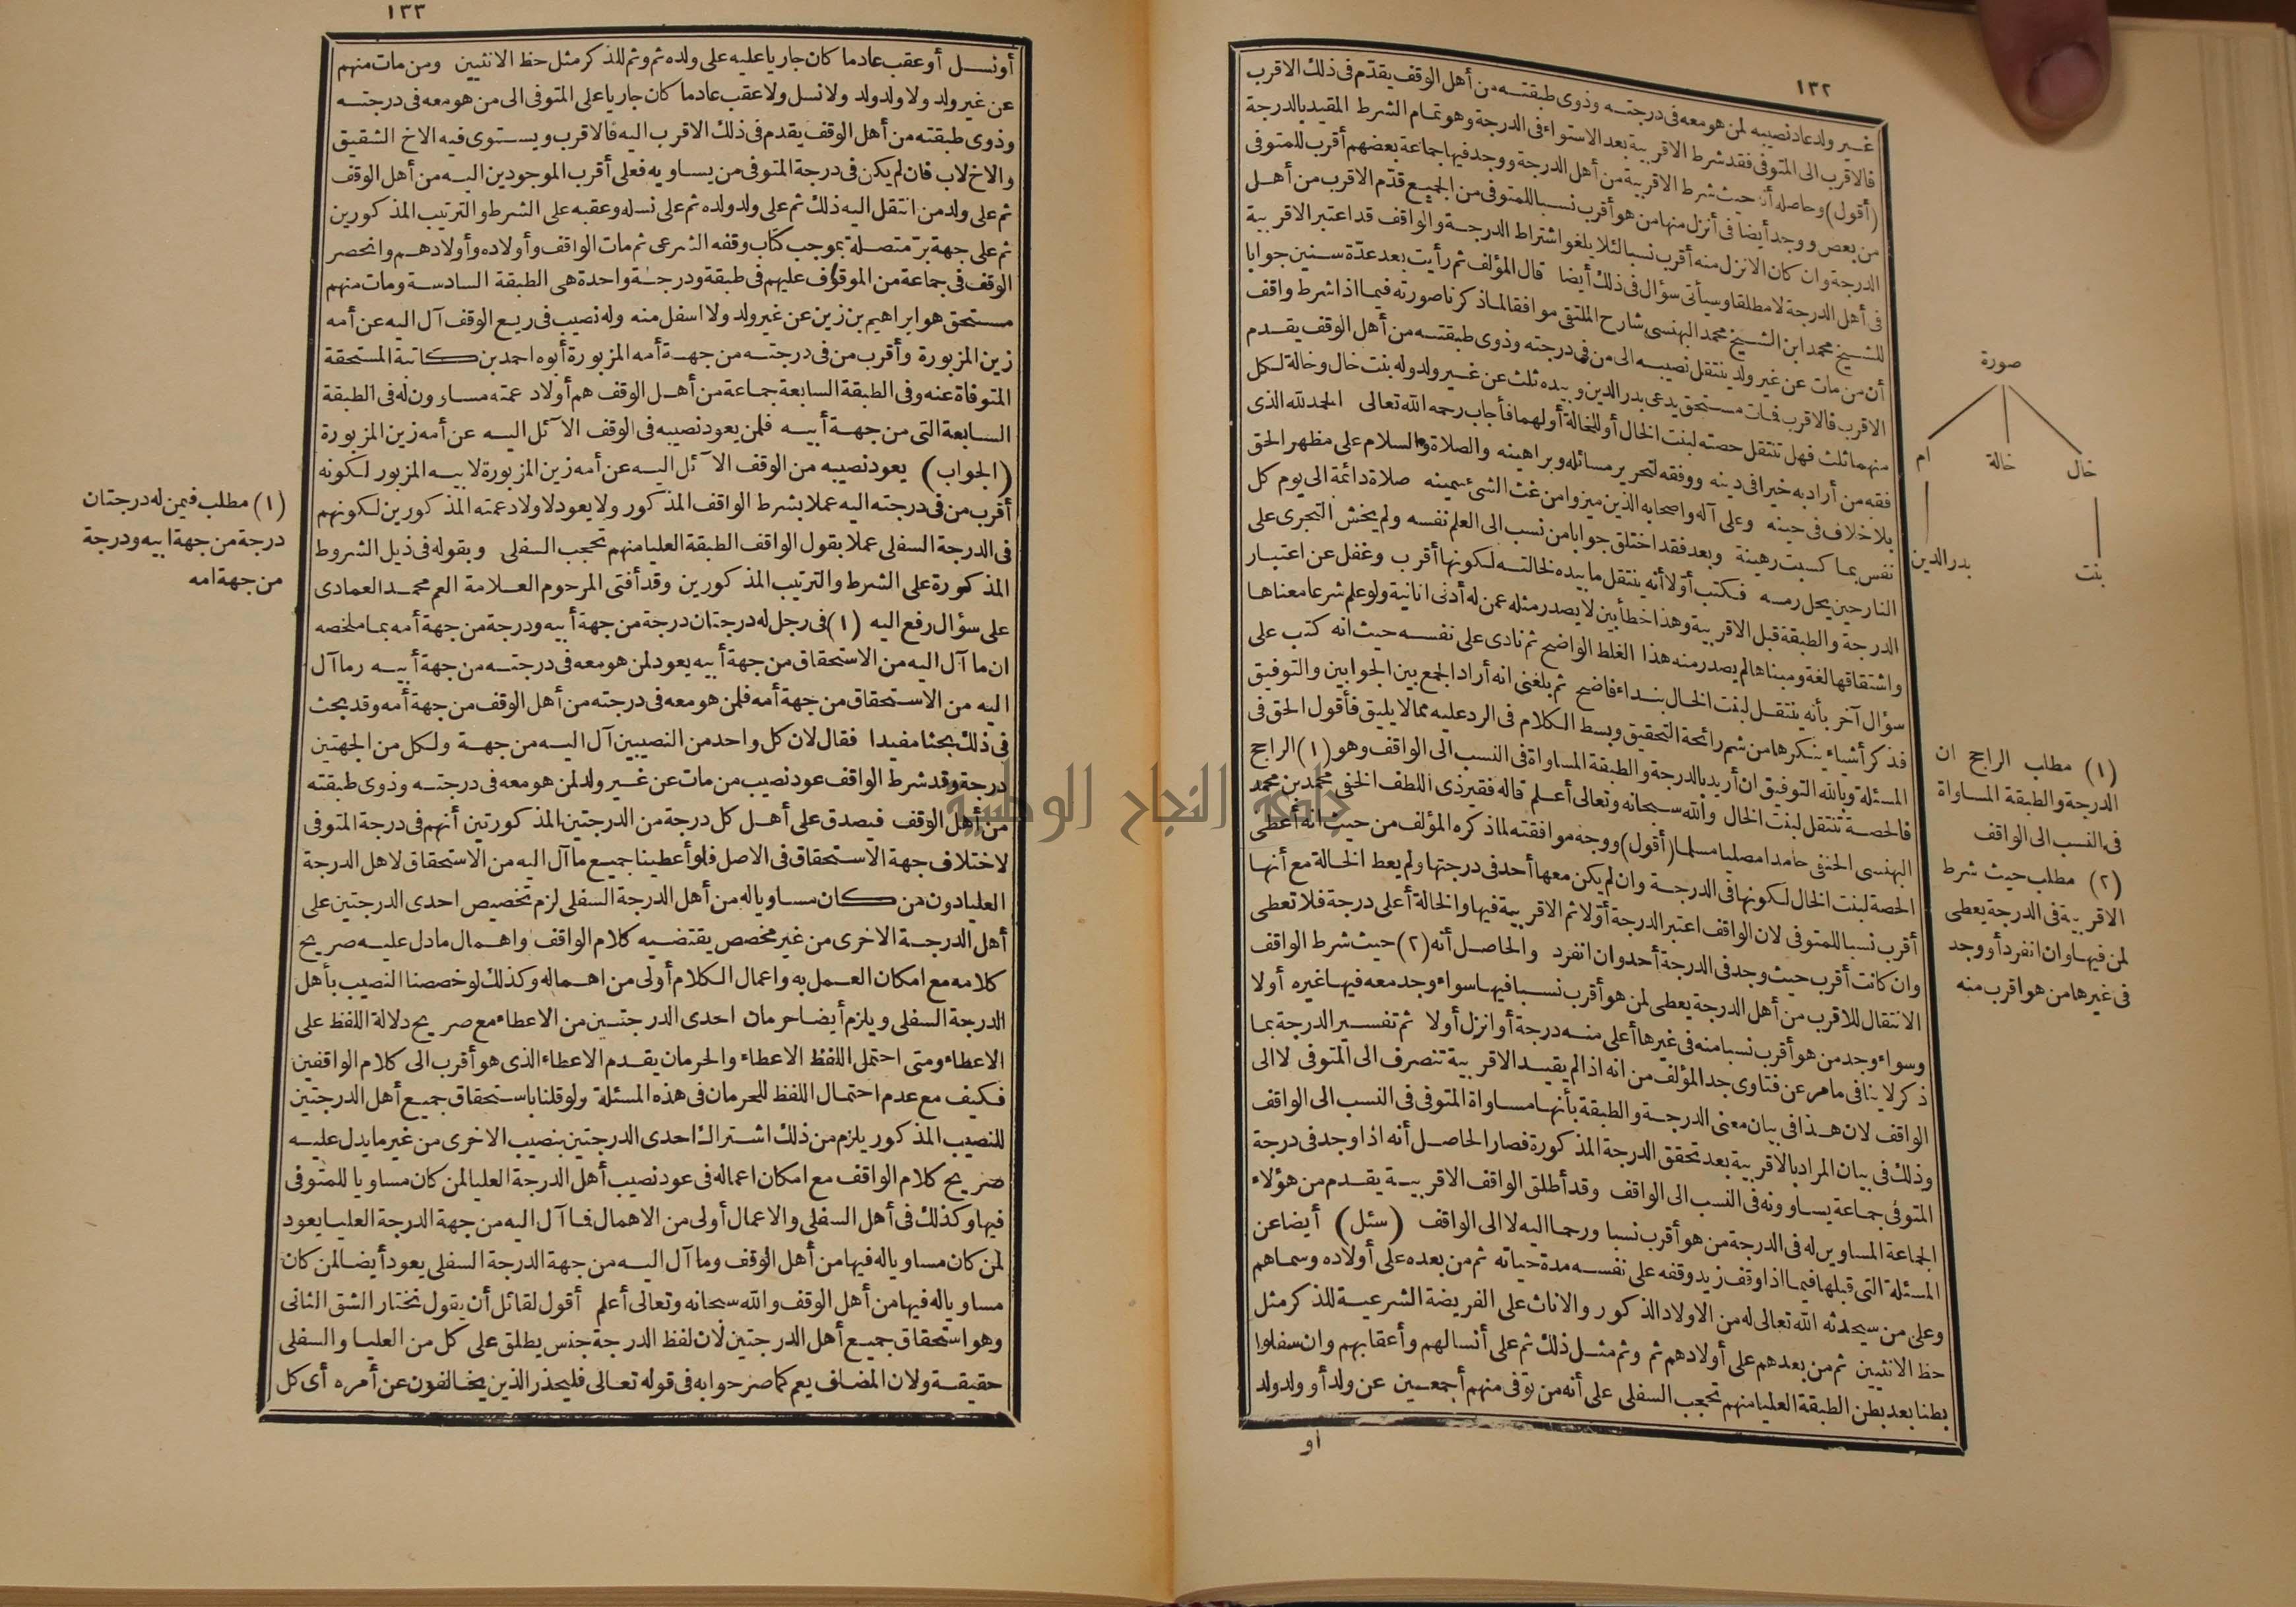 ١٣٢
غير ولد عاد نصيبه لمن هو معه في درجته وذوى طبقته من أهل الوقف يقدّم في ذلك الاقرب
فالاقرب الى المتوفى فقد شرط الاقربية بعد الاستواء في الدرجة وهو تمام الشرط المقيد بالدرجة
(أقول) وحاصله أن حيث شرط الاقربية من أهل الدرجة ووجد فيها جماعة بعضهم أقرب للمتوفى
من بعض ووجد أيضا في أنزل منها من هو أقرب نسبا للمتوفى من الجميع قدّم الاقرب من أهل
الدرجة وان كان الانزل منه أقرب نسبا لئلا يلغو اشتراط الدرجة والواقف قد اعتبر الاقربية
في أهل الدرجة لا مطلقا وسيأتى سؤال في ذلك أيضا قال المؤلف ثم رأيت بعد عدّة سنين جوابا
للشيخ محمد ابن الشيخ محمد البهنسى شارح الملتقى موافقا لما ذكرنا صورته فيما اذا شرط واقف
أن من مات عن غير ولد ينتقل نصيبه الى من في درجته وذوى طبقته من أهل الوقف يقدم
الاقرب فالاقرب فمات مستحق يدعى بدر الدين وبيده ثلث عن غير ولد وله بنت خال وخالة لكل
منهما ثلث فهل تنتقل حصته لبنت الخال أو للخالة أو لهما فأجاب رحمه الله تعالى الحمد لله الذى
فقه من أراد به خيرا في دينه ووفقه لتحرير مسائله وبراهينه والصلاة والسلام على مظهر الحق
بلا خلاف في حينه وعلى آله واصحابه الذين ميزوا من غث الشئ سمينه صلاة دائمة الى يوم كل
نفس بما كسبت رهينة وبعد فقد اختلق جوابا من نسب الى العلم نفسه ولم يخش التجرى على
النار حين يحل رمسه فكتب أولا أنه ينتقل ما بيده لخالته لكونها أقرب وغفل عن اعتبار
الدرجة والطبقة قبل الاقربية وهذا خطأ بين لا يصدر مثله عمن له أدنى انانية ولو علم شرعا معناها
واشتقاقها لغة ومبناها لم يصدر منه هذا الغلط الواضح ثم نادى على نفسه حيث انه كتب على
سؤال آخر بأنه ينتقل لبنت الخال بنداء فاضح ثم بلغنى انه أراد الجمع بين الجوابين والتوفيق
فذكر أشياء ينكرها من شم رائحة التحقيق وبسط الكلام في الرد عليه مما لا يليق فأقول الحق في
المسئلة وبالله التوفيق ان أريد بالدرجة والطبقة المساواة في النسب الى الواقف وهو (١) الراجح
فالحصة تنتقل لبنت الخال والله سبحانه وتعالى أعلم قاله فقير ذى اللطف الخفى محمد بن محمد
البهنسى الحنفى حامدا مصليا مسلما (أقول) ووجه موافقته لما ذكره المؤلف من حيث انه أعطى
الحصة لبنت الخال لكونها في الدرجة وان لم يكن معها أحد في درجتها ولم يعط الخالة مع أنها
أقرب نسبا للمتوفى لان الواقف اعتبر الدرجة أولا ثم الاقربية فيها والخالة أعلى درجة فلا تعطى
وان كانت أقرب حيث وجد في الدرجة أحد وان انفرد والحاصل أنه (٢) حيث شرط الواقف
الانتقال للاقرب من أهل الدرجة يعطى لمن هو أقرب نسبا فيها سواء وجد معه فيها غيره أولا
وسواء وجد من هو أقرب نسبا منه في غيرها أعلى منه درجة أو انزل أولا ثم تفسير الدرجة بما
ذكر لا ينافى ما مر عن فتاوى جد المؤلف من انه اذا لم يقيد الاقربية تنصرف الى المتوفى لا الى
الواقف لان هذا في بيان معنى الدرجة والطبقة بأنها مساواة المتوفى في النسب الى الواقف
وذلك في بيان المراد بالاقربية بعد تحقق الدرجة المذكورة فصار الحاصل أنه اذا وجد في درجة
المتوفى جماعة يساوونه في النسب الى الواقف وقد أطلق الواقف الاقربية يقدم من هؤلاء
الجماعة المساوين له في الدرجة من هو أقرب نسبا ورحما اليه لا الى الواقف (سئل) أيضا عن
المسئلة التى قبلها فيما اذا وقف زيد وقفه على نفسه مدة حياته ثم من بعده على أولاده وسماهم
وعلى من سيحدثه الله تعالى له من الاولاد الذكور والاناث على الفريضة الشرعية للذكر مثل
حظ الانثيين ثم من بعدهم على أولادهم ثم وثم مثل ذلك ثم على أنسالهم وأعقابهم وان سفلوا
بطنا بعد بطن الطبقة العليا منهم تحجب السفلى على أنه من توفى منهم أجمعين عن ولد أو ولد ولد
أو
صورة
خال
خالة
ام
بنت
بدر الدين
(١) مطلب الراجح ان
الدرجة والطبقة المساواة
في النسب الى الواقف
(٢) مطلب حيث شرط
الاقربية في الدرجة يعطى
لمن فيها وان انفرد أو وجد
في غيرها من هو اقرب منه
١٣٣
أو نسل أو عقب عاد ما كان جاريا عليه على ولده ثم وثم للذكر مثل حظ الانثيين ومن مات منهم
عن غير ولد ولا ولد ولد ولا نسل ولا عقب عاد ما كان جاريا على المتوفى الى من هو معه في درجته
وذوى طبقته من أهل الوقف يقدم في ذلك الاقرب اليه فالاقرب ويستوى فيه الاخ الشقيق
والاخ لاب فان لم يكن في درجة المتوفى من يساويه فعلى أقرب الموجودين اليه من أهل الوقف
ثم على ولد من انتقل اليه ذلك ثم على ولد ولده ثم على نسله وعقبه على الشرط والترتيب المذكورين
ثم على جهة برّ متصلة بموجب كتاب وقفه الشرعى ثم مات الواقف وأولاده وأولادهم وانحصر
الوقف في جماعة من الموقوف عليهم في طبقة ودرجة واحدة هى الطبقة السادسة ومات منهم
مستحق هو ابراهيم بن زين عن غير ولد ولا اسفل منه وله نصيب في ريع الوقف آل اليه عن أمه
زين المزبورة وأقرب من في درجته من جهة أمه المزبورة أبوه احمد بن كاتبة المستحقة
المتوفاة عنه وفى الطبقة السابعة جماعة من أهل الوقف هم أولاد عمته مساوون له في الطبقة
السابعة التى من جهة أبيه فلمن يعود نصيبه في الوقف الآئل اليه عن أمه زين المزبورة
(الجواب) يعود نصيبه من الوقف الآئل اليه عن أمه زين المزبورة لابيه المزبور لكونه
أقرب من في درجته اليه عملا بشرط الواقف المذكور ولا يعود لاولاد عمته المذكورين لكونهم
في الدرجة السفلى عملا بقول الواقف الطبقة العليا منهم تحجب السفلى وبقوله في ذيل الشروط
المذكورة على الشرط والترتيب المذكورين وقد أفتى المرحوم العلامة العم محمد العمادى
على سؤال رفع اليه (١) في رجل له درجتان درجة من جهة أبيه ودرجة من جهة أمه بما ملخصه
ان ما آل اليه من الاستحقاق من جهة أبيه يعود لمن هو معه في درجته من جهة أبيه وما آل
اليه من الاستحقاق من جهة أمه فلمن هو معه في درجته من أهل الوقف من جهة أمه وقد بحث
في ذلك بحثا مفيدا فقال لان كل واحد من النصيبين آل اليه من جهة ولكل من الجهتين
درجة وقد شرط الواقف عود نصيب من مات عن غير ولد لمن هو معه في درجته وذوى طبقته
من أهل الوقف فيصدق على أهل كل درجة من الدرجتين المذكورتين أنهم في درجة المتوفى
لاختلاف جهة الاستحقاق في الاصل فلو أعطينا جميع ما آل اليه من الاستحقاق لاهل الدرجة
العليا دون من كان مساويا له من أهل الدرجة السفلى لزم تخصيص احدى الدرجتين على
أهل الدرجة الاخرى من غير مخصص يقتضيه كلام الواقف واهمال ما دل عليه صريح
كلامه مع امكان العمل به واعمال الكلام أولى من اهماله وكذلك لو خصصنا النصيب بأهل
الدرجة السفلى ويلزم أيضا حرمان احدى الدرجتين من الاعطاء مع صريح دلالة اللفظ على
الاعطاء ومتى احتمل اللفظ الاعطاء والحرمان يقدم الاعطاء الذى هو أقرب الى كلام الواقفين
فكيف مع عدم احتمال اللفظ للحرمان في هذه المسئلة ولو قلنا باستحقاق جميع أهل الدرجتين
للنصيب المذكور يلزم من ذلك اشتراك احدى الدرجتين بنصيب الاخرى من غير ما يدل عليه
صريح كلام الواقف مع امكان اعماله في عود نصيب أهل الدرجة العليا لمن كان مساويا للمتوفى
فيها وكذلك في أهل السفلى والاعمال أولى من الاهمال فما آل اليه من جهة الدرجة العليا يعود
لمن كان مساويا له فيها من أهل الوقف وما آل اليه من جهة الدرجة السفلى يعود أيضا لمن كان
مساويا له فيها من أهل الوقف والله سبحانه وتعالى أعلم أقول لقائل أن يقول نختار الشق الثانى
وهو استحقاق جميع أهل الدرجتين لان لفظ الدرجة جنس يطلق على كل من العليا والسفلى
حقيقة ولان المضاف يعم كما صرحوا به في قوله تعالى فليحذر الذين يخالفون عن أمره أى كل
(١) مطلب فيمن له درجتان
درجة من جهة ابيه ودرجة
من جهة امه
جامعة النجاح الوطنية